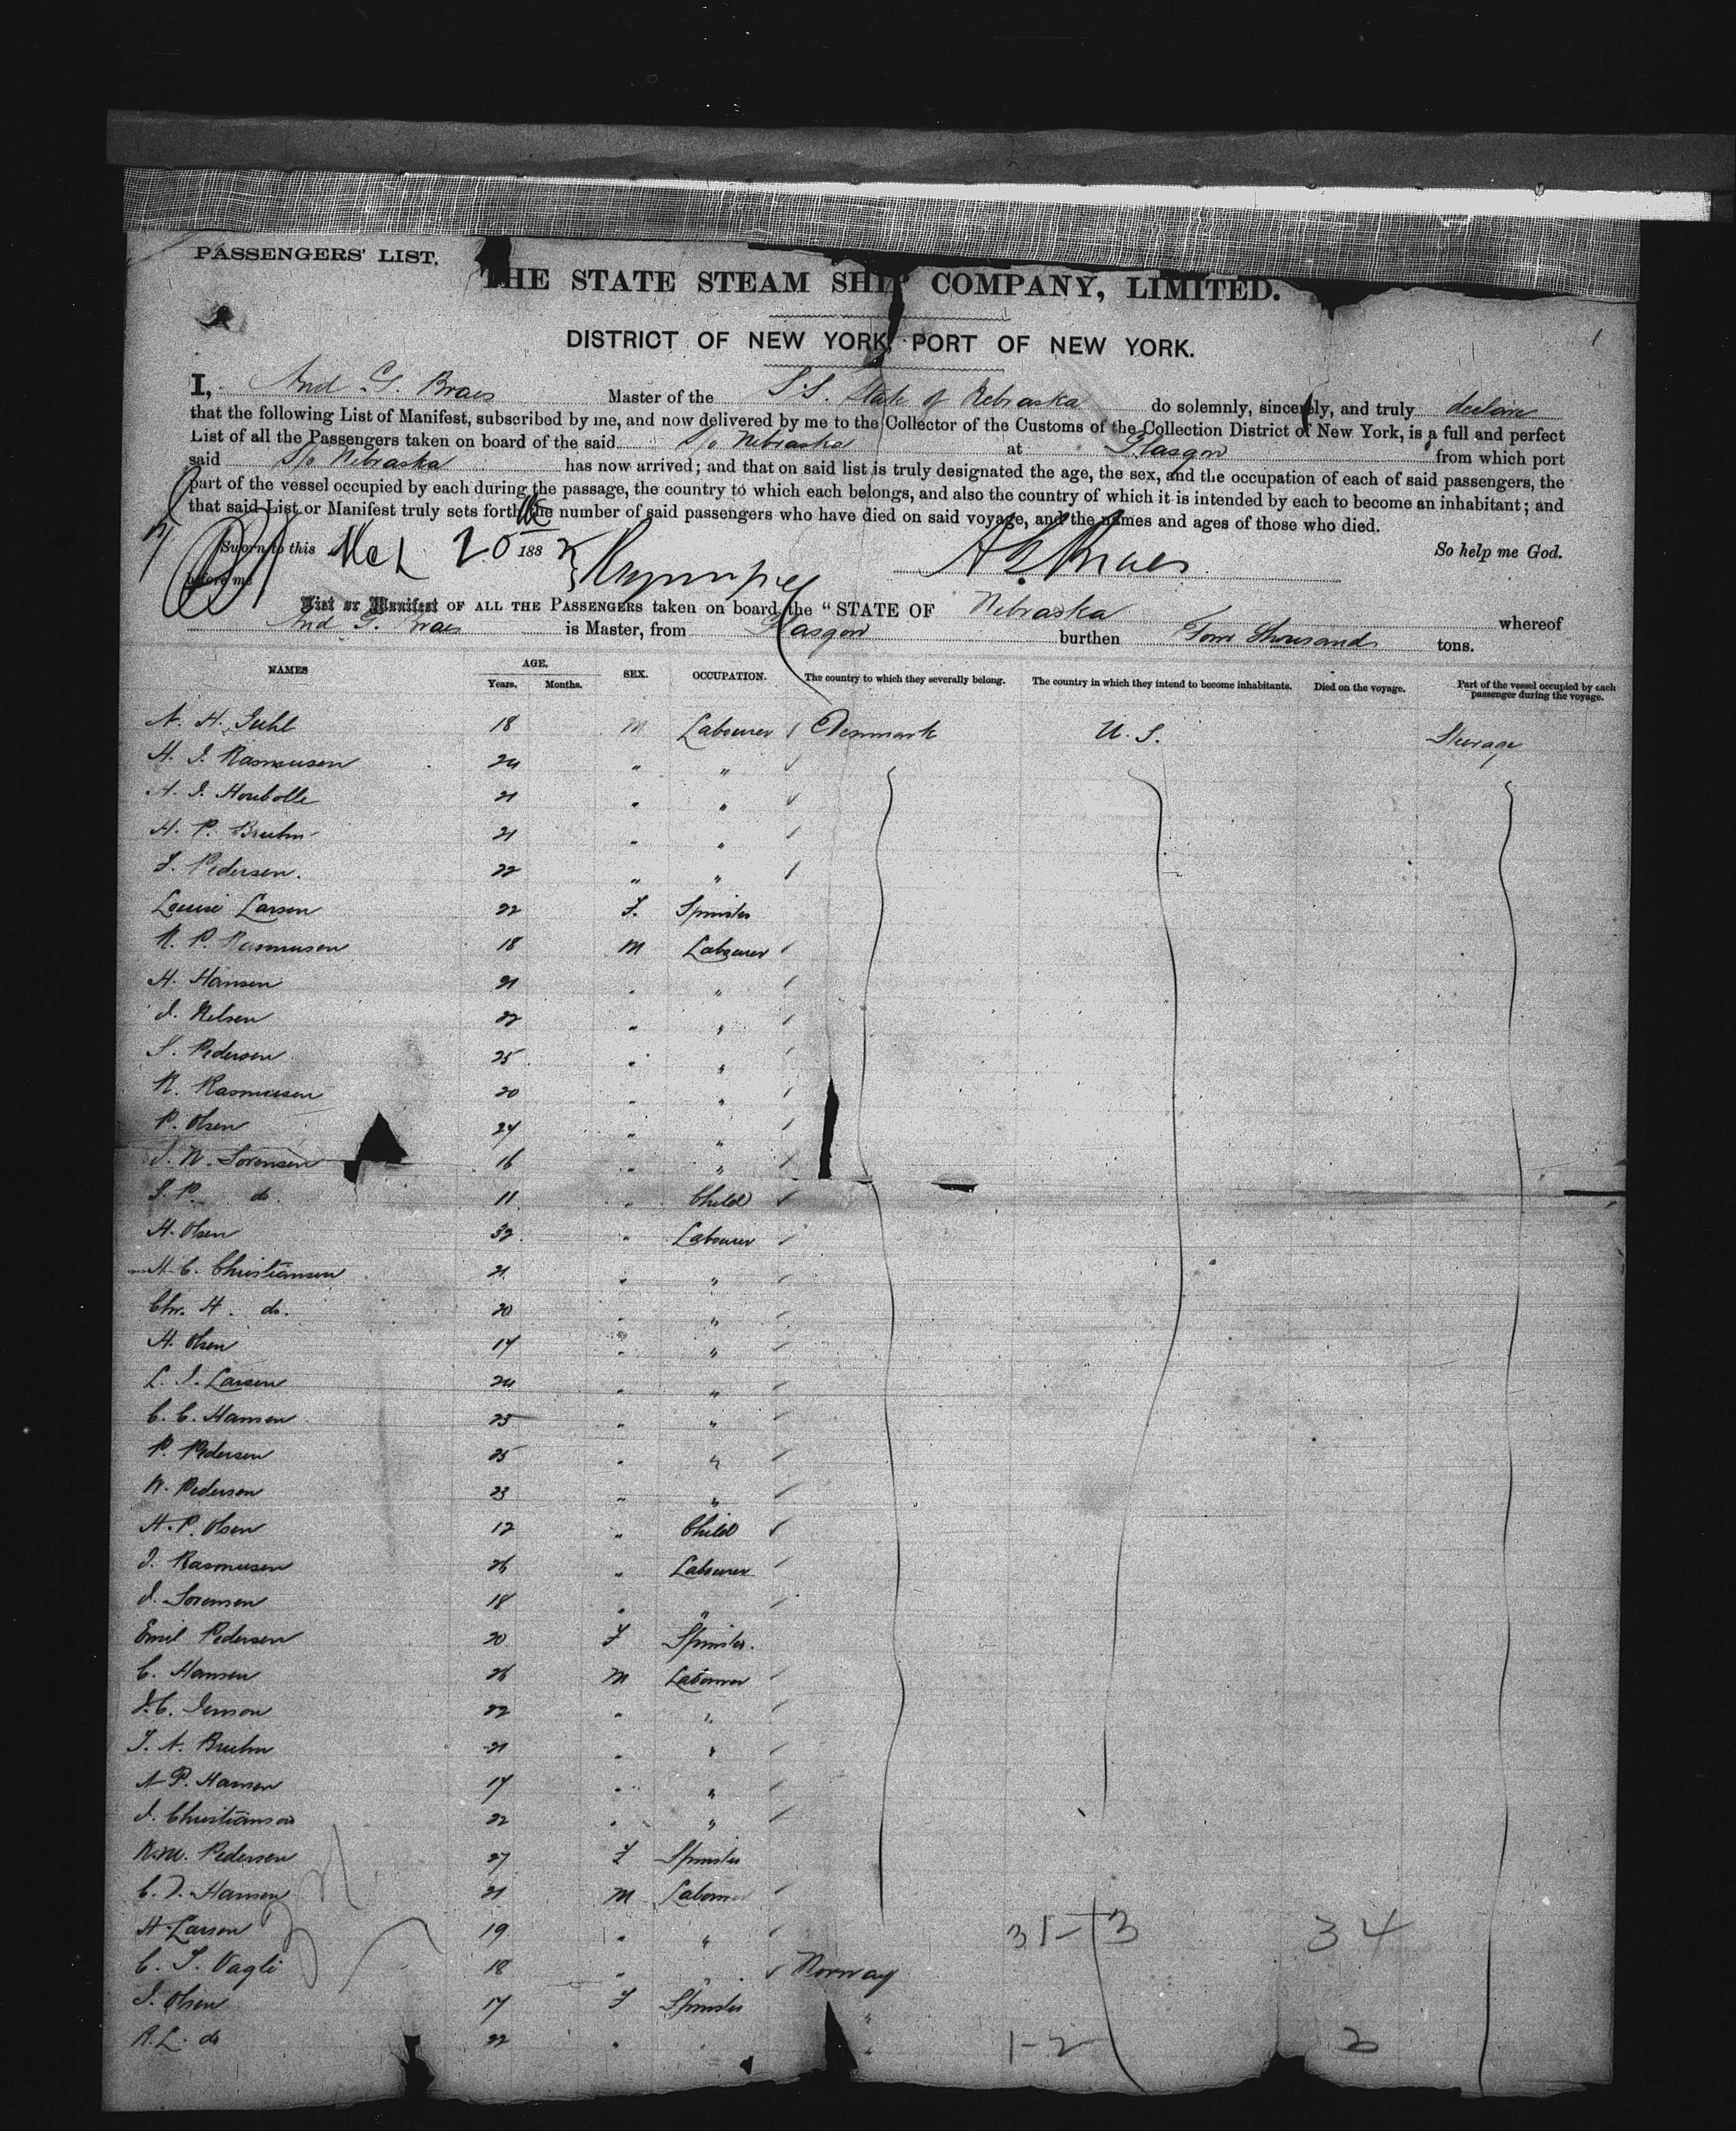 PASSENGERS' LIST.
THE STATE STEAM SHIP COMPANY, LIMITED.
1
DISTRICT OF NEW YORK, PORT OF NEW YORK.
I, And G. Braes Master of the S.S. State of Nebraska do solemnly, sincerely, and truly declare
that the following List of Manifest, subscribed by me, and now delivered by me to the Collector of the Customs of the Collection District of New York, is a full and perfect
List of all the Passengers taken on board of the said S/o Nebraska at Glasgow from which port
said S/o Nebraska has now arrived; and that on said list is truly designated the age, the sex, and the occupation of each of said passengers, the
part of the vessel occupied by each during the passage, the country to which each belongs, and also the country of which it is intended by each to become an inhabitant; and
that said List or Manifest truly sets forth the number of said passengers who have died on said voyage, and the names and ages of those who died.
Sworn to this Mch 20 188 So help me God.
before me A G Braes
List or Manifest OF ALL THE PASSENGERS taken on board the "STATE OF Nebraska whereof
And G. Braes is Master, from Glasgow burthen Four Thousand tons.
NAMES AGE. Years. Months. SEX. OCCUPATION. The country to which they severally belong. The country in which they intend to become inhabitants. Died on the voyage. Part of the vessel occupied by each passenger during the voyage.
N. H. Juhl 18 M Labourer Denmark U.S. Steerage
H. J. Rasmusen 24 " "
A. J. Houbolle 21 " "
H. P. Bruhn 21 " "
J. Pedersen. 22 " "
Louise Larsen 22 F. Spinster
R. P. Rasmusen 18 M Labourer
H. Hansen 21 " "
J. Nelsen 22 " "
S. Pedersen 25 " "
R. Rasmusen 20 " "
P. Olsen 24 " "
J. N. Sorensen 16 " "
S. P. do. 11 " Child
H. Olsen 32 " Labourer
H. C. Christiansen 21 " "
Chr. H. do. 20 " "
H. Olsen 17 " "
L. J. Larsen 24 " "
C. C. Hansen 25 " "
P. Pedersen 25 " "
N. Pedersen 23 " "
H. P. Olsen 12 " Child
J. Rasmusen 26 " Labourer
J. Sorensen 18 " "
Emil Pedersen 20 F Spinster.
C. Hansen 26 M Labourer
J. C. Jenson 22 " "
J. A. Bruhn 21 " "
N P. Hansen 17 " "
J. Christianson 22 " "
N.M. Pedersen 27 F Spinster
C. J. Hansen 21 M Labourer
H. Larsen 19 " " 31-3 34
C. J. Vagli 18 " " Norway
J. Olsen 17 F Spinster "
R.L. do 22 " " " 1-2 3